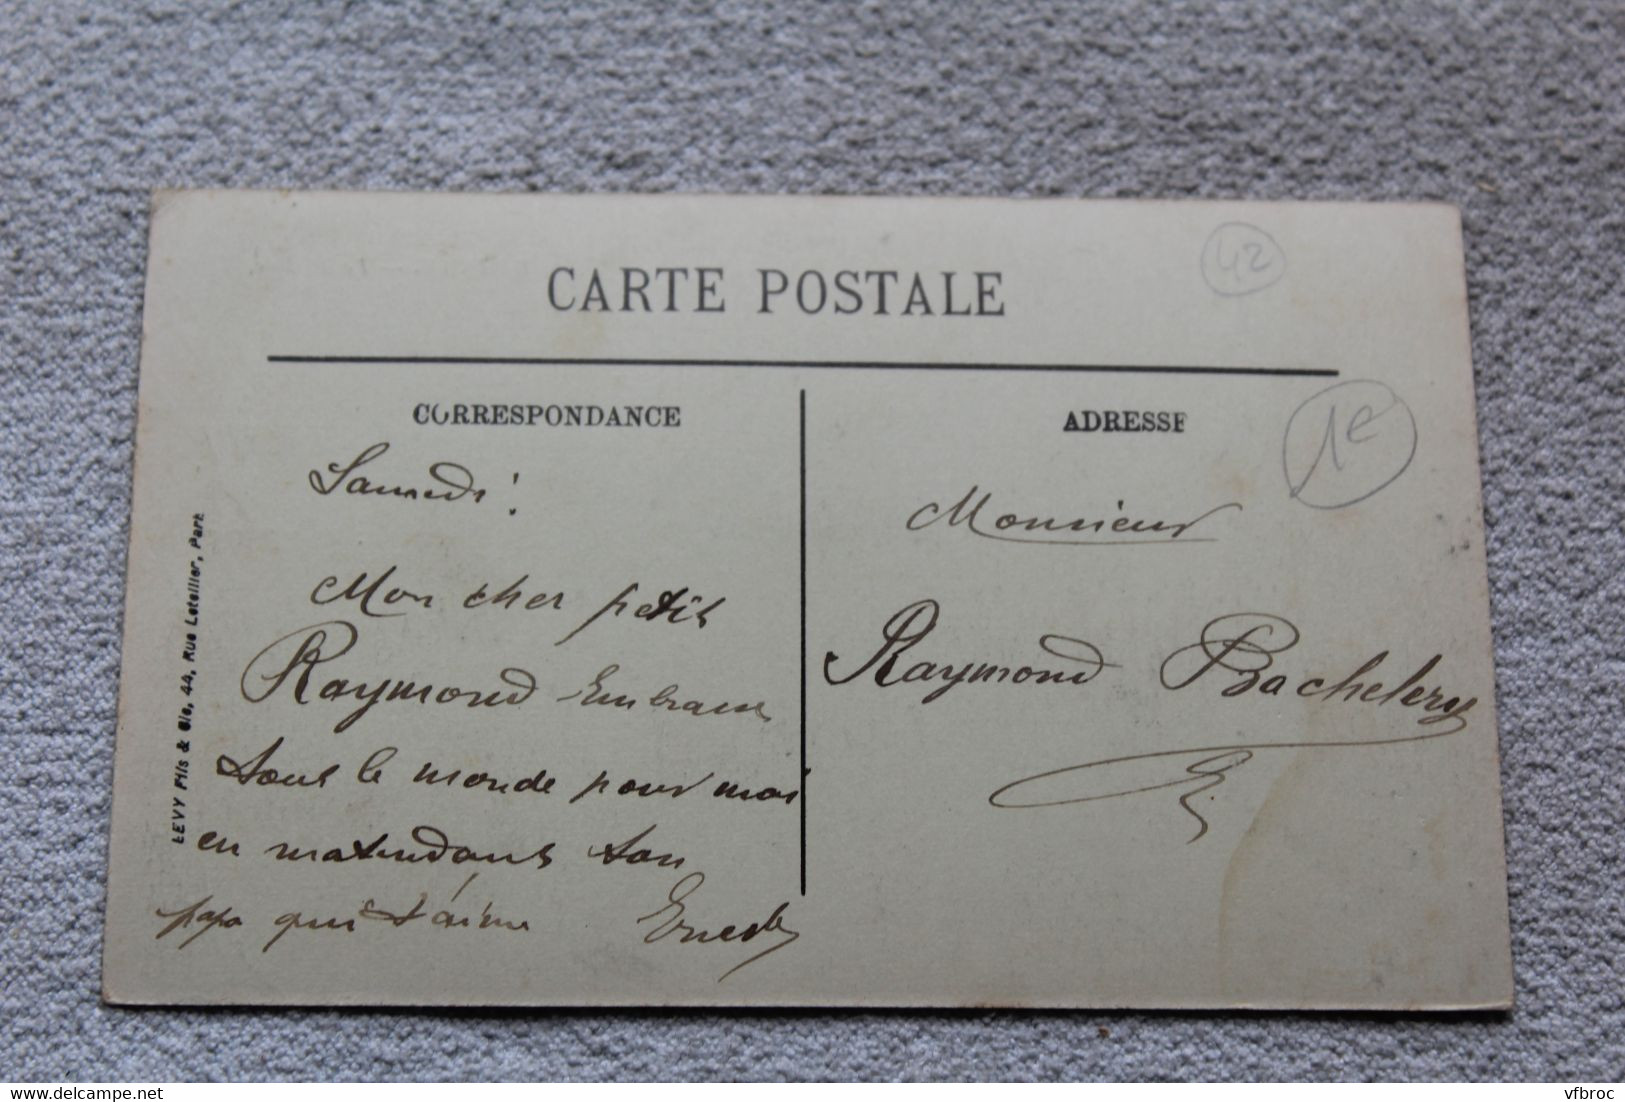 42
CARTE POSTALE
CORRESPONDANCE
Samedi !
Mon cher petit
Raymond Embrasse
tous le monde pour moi
en matendant ton
papa qui t'aime Ernest
ADRESSE
1€
Monsieur
Raymond Bachelery
LEVY Fils & Cie, 44, Rue Letellier, Paris
delcampe.net
vfbroc